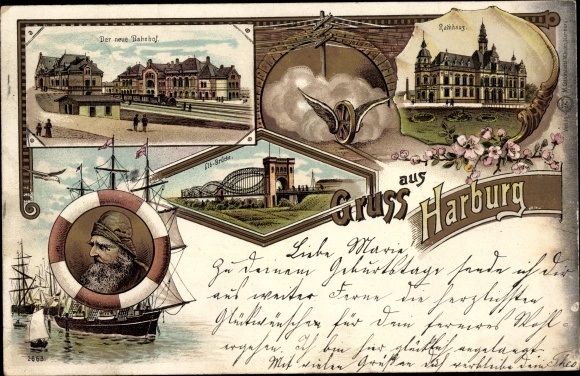 Der neue Bahnhof.
Rathhaus.
Elb-Brücke.
Gruss aus Harburg
Liebe Marie
Zu deinem Geburtstage sende ich dir
aus weiter Ferne die herzlichsten
Glückwünsche für dein ferneres Wohl-
ergehen. Ich bin hier glücklich angelangt.
Mit vielen Grüßen verbleibe dein Theo